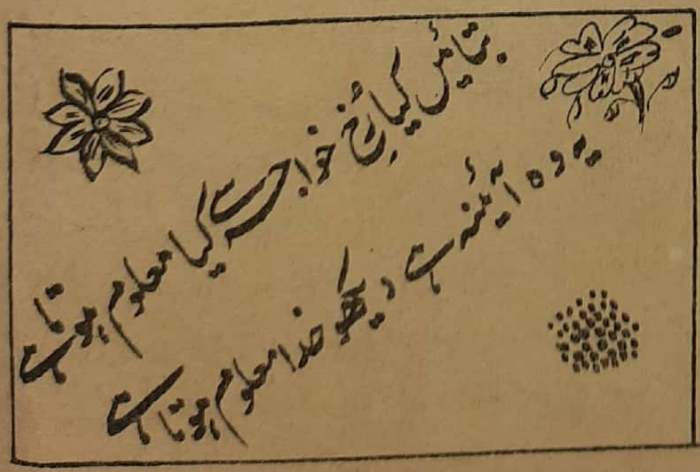 بتائیں کیا رُخِ خواجہ سے کیا معلوم ہوتا ہے
یہ وہ آئینہ ہے دیکھو خدا معلوم ہوتا ہے